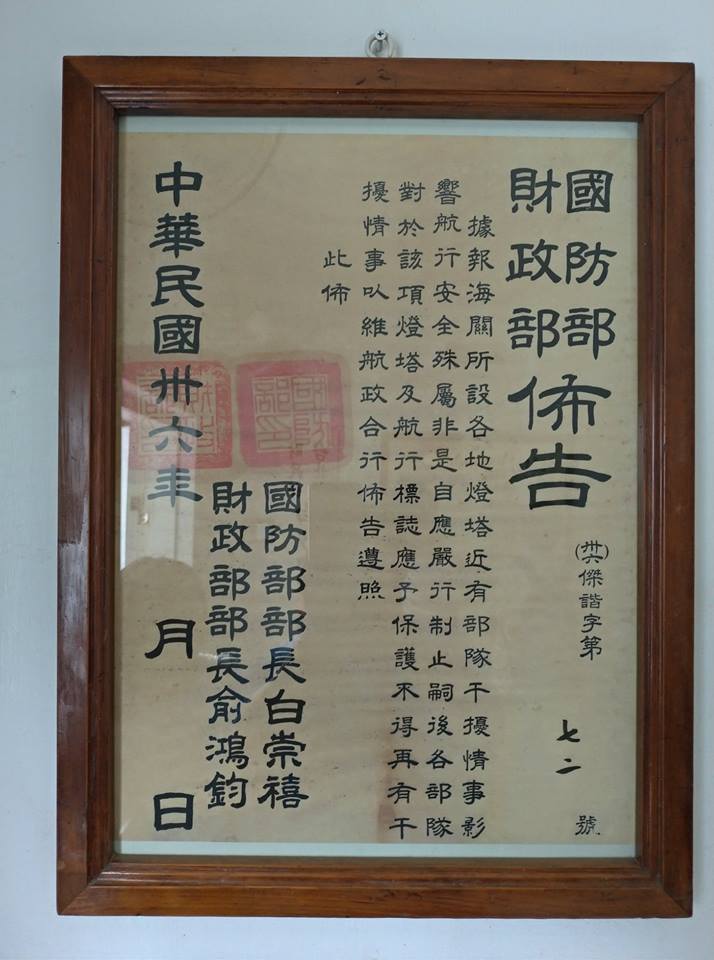 國防部
財政部
佈告
(卅六)傑諧字第 七二 號
據報海關所設各地燈塔近有部隊干擾情事影
響航行安全殊屬非是自應嚴行制止嗣後各部隊
對於該項燈塔及航行標誌應予保護不得再有干
擾情事以維航政合行佈告遵照
此佈
國防部部長白崇禧
財政部部長俞鴻鈞
中華民國卅六年 月 日
國防部印